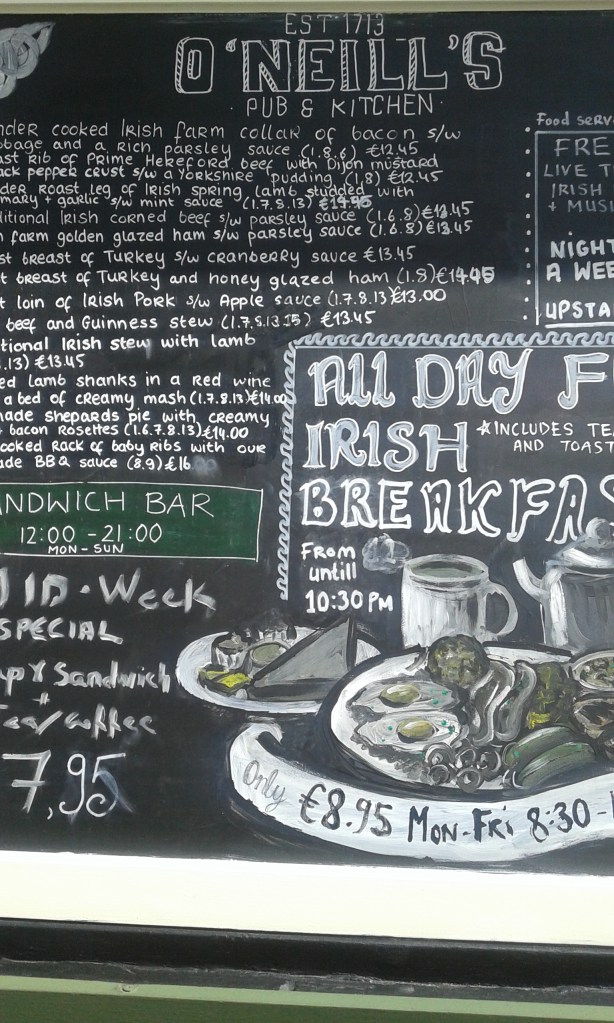 EST 1713
O'NEILL'S
· PUB & KITCHEN ·
nder cooked Irish farm collar of bacon s/w
bbage and a rich parsley sauce (1.8.6) €12.45
ast Rib of Prime Hereford beef with Dijon mustard
ack pepper crust s/w a Yorkshire pudding (1,8) €12.45
der Roast leg of Irish spring lamb studded with
mary + garlic s/w mint sauce (1.7.8.13)
ditional Irish corned beef s/w parsley sauce (1.6.8) €13.45
h farm golden glazed ham s/w parsley sauce (1.6.8) €13.45
st breast of Turkey s/w cranberry sauce €13.45
t breast of Turkey and honey glazed ham (1.8) €14.45
t loin of Irish Pork s/w Apple sauce (1.7.8.13) €13.00
beef and Guinness stew (1.7.8.13.15) €13.45
tional Irish stew with lamb
.13) €13.45
ed lamb shanks in a red wine
a bed of creamy mash (1.7.8.13) €14.00
made shepards pie with creamy
bacon Rosettes (1.6.7.8.13) €14.00
cooked Rack of baby Ribs with our
ade BBQ sauce (8.9) €16
NDWICH BAR
12:00 - 21:00
MON - SUN
MID · Week
SPECIAL
Sandwich
+
Tea/coffee
7,95
Food serv
FRE
LIVE T
IRISH
+ MUSI
NIGHT
A WEE
UPSTA
All DAY F
IRISH
*INCLUDES TEA
AND TOAST
BREAKFAS
From
untill
10:30 PM
Only €8.95 Mon-Fri 8:30 -